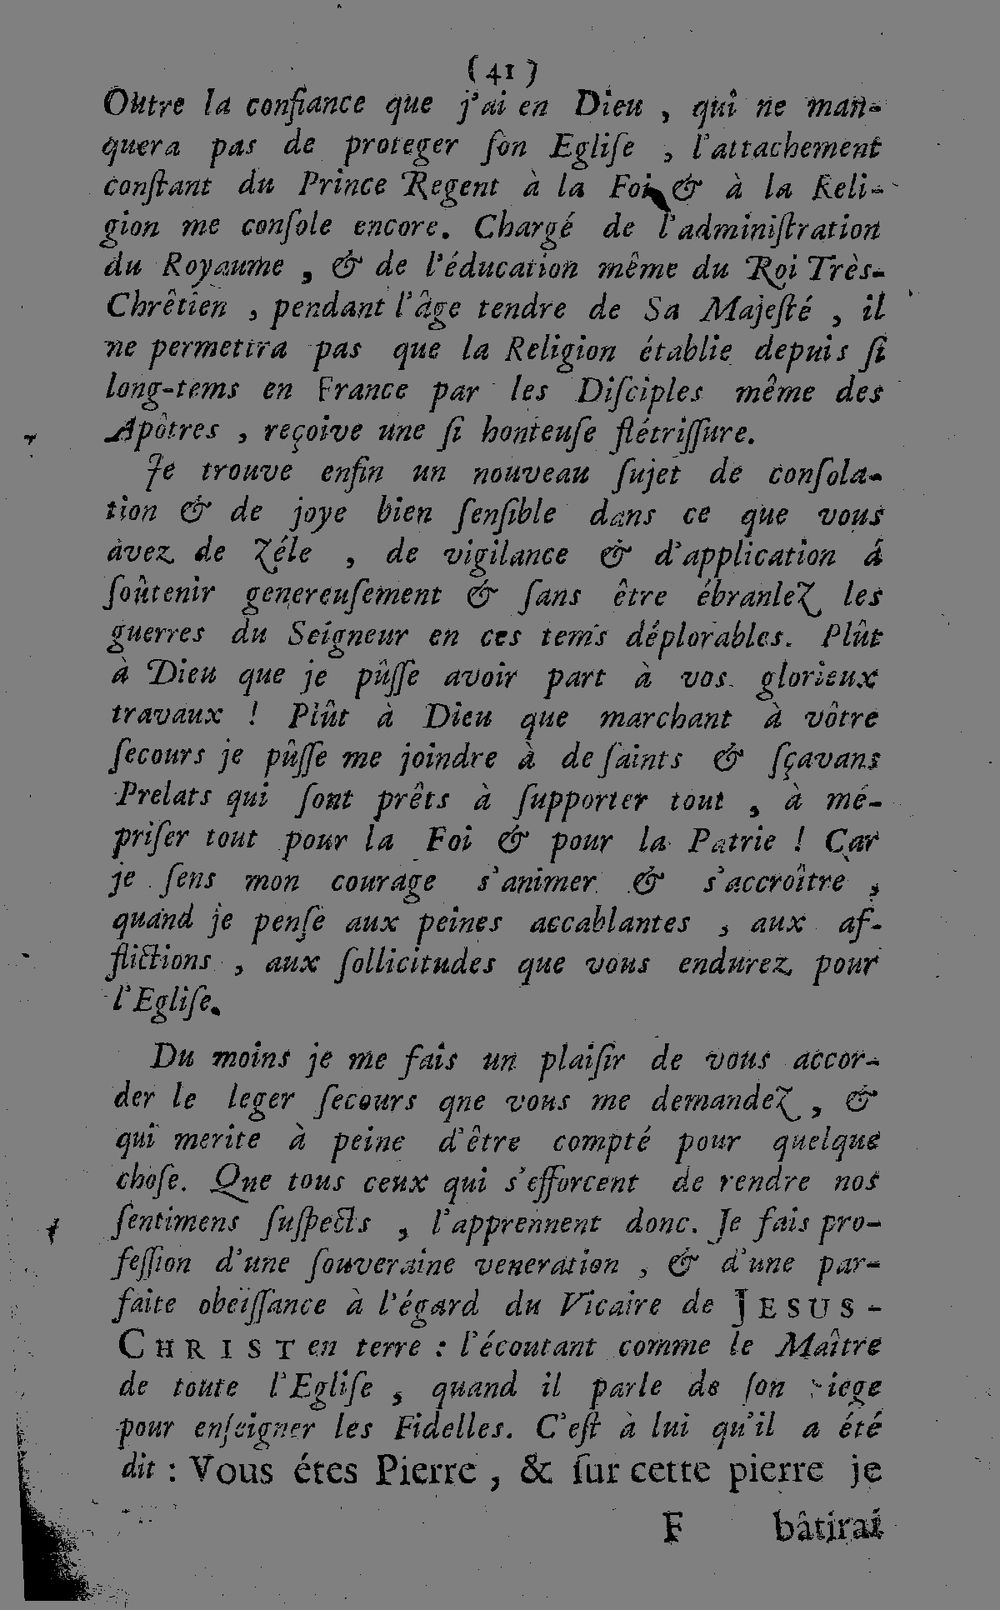 (41)
Outre la confiance que j'ai en Dieu , qui ne man-
quera pas de proteger ſon Egliſe , l'attachement
conſtant du Prince Regent à la Foi & à la Reli-
gion me conſole encore. Chargé de l'adminiſtration
du Royaume , & de l'éducation même du Roi Très-
Chrêtien , pendant l'âge tendre de Sa Majeſté , il
ne permettra pas que la Religion établie depuis ſi
long-tems en France par les Diſciples même des
Apôtres , reçoive une ſi honteuſe flétriſſure.
Je trouve enfin un nouveau ſujet de conſola-
tion & de joye bien ſenſible dans ce que vous
avez de Zéle , de vigilance & d'application á
ſoûtenir genereuſement & ſans être ébranleZ les
guerres du Seigneur en ces tems déplorables. Plût
à Dieu que je pûſſe avoir part à vos glorieux
travaux ! Plût à Dieu que marchant à vôtre
ſecours je pûſſe me joindre à de ſaints & ſçavans
Prelats qui ſont prêts à ſupporter tout , à mé-
priſer tout pour la Foi & pour la Patrie ! Car
je ſens mon courage s'animer & s'accroître ,
quand je penſe aux peines accablantes , aux af-
flictions , aux ſollicitudes que vous endurez pour
l'Egliſe.
Du moins je me fais un plaiſir de vous accor-
der le leger ſecours qne vous me demandeZ , &
qui merite à peine d'être compté pour quelque
choſe. Que tous ceux qui s'efforcent de rendre nos
ſentimens ſuſpects , l'apprennent donc. Je fais pro-
feſſion d'une ſouveraine veneration , & d'une par-
faite obeïſſance à l'égard du Vicaire de JESUS-
CHRIST en terre : l'écoutant comme le Maître
de toute l'Egliſe , quand il parle de ſon Siege
pour enſeigner les Fidelles. C'eſt à lui qu'il a été
dit : Vous étes Pierre , & ſur cette pierre je
F bâtirai